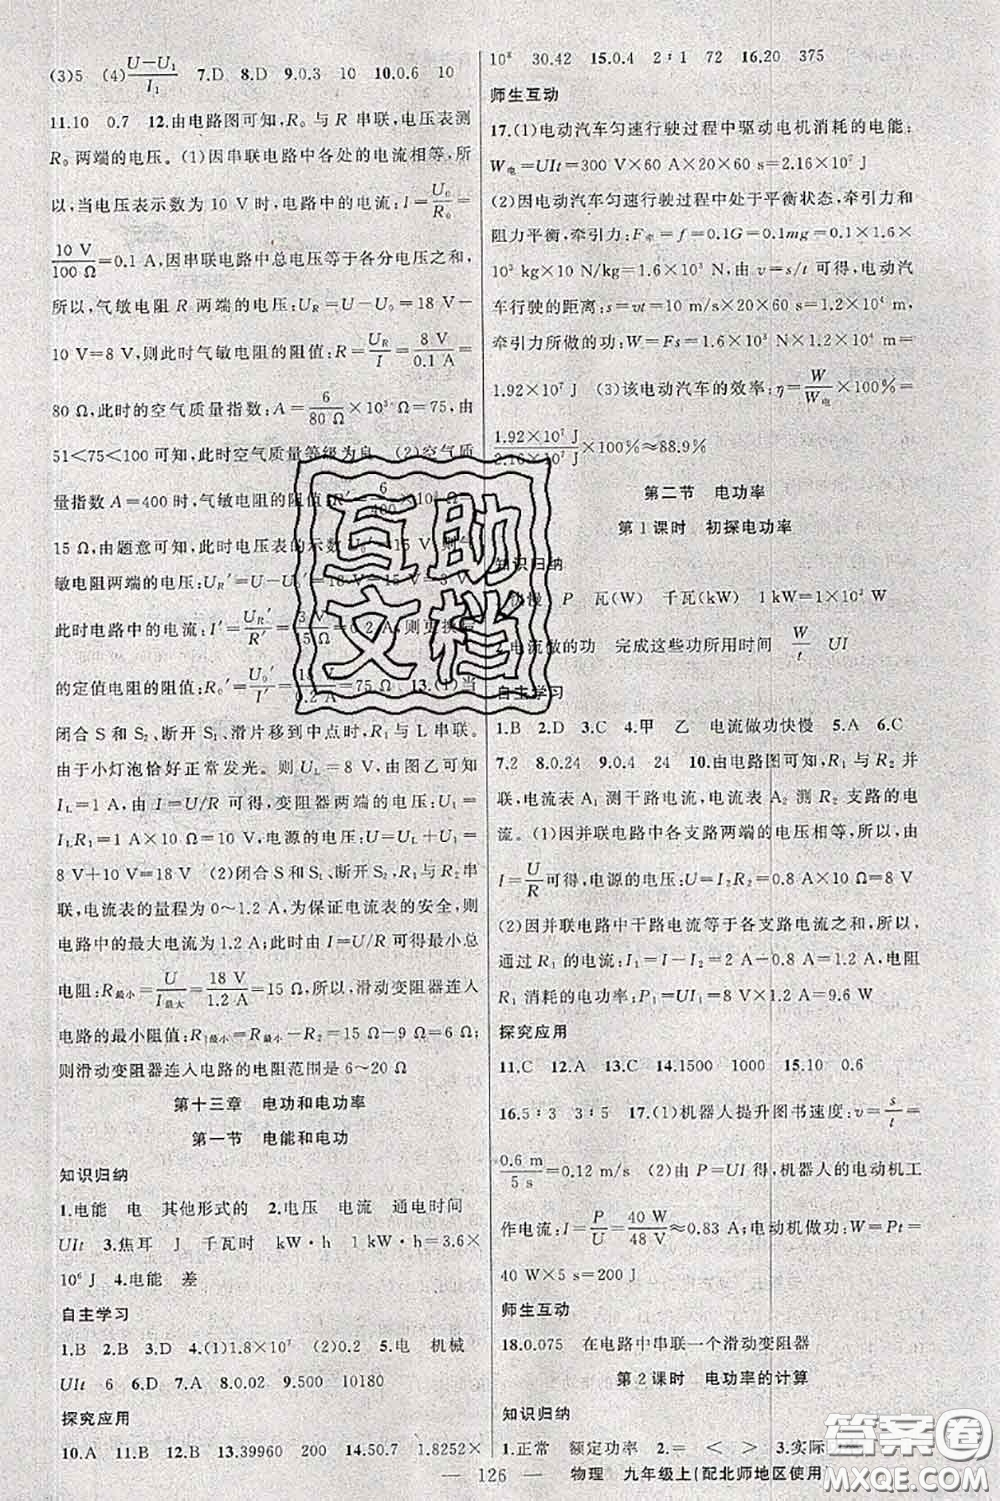 (3)5 (4)(U－U₁)/I₁ 7.D 8.D 9.0.3 10 10.0.6 10
11.10 0.7 12.由电路图可知,R₀ 与 R 串联,电压表测
R₀ 两端的电压。(1)因串联电路中各处的电流相等,所
以,当电压表示数为 10 V 时,电路中的电流:I＝U₀/R₀＝
10 V/100 Ω＝0.1 A,因串联电路中总电压等于各分电压之和,
所以,气敏电阻 R 两端的电压:U_R＝U－U₀＝18 V－
10 V＝8 V,则此时气敏电阻的阻值:R＝U_R/I＝8 V/0.1 A＝
80 Ω,此时的空气质量指数:A＝6/80 Ω×10³ Ω＝75,由
51＜75＜100 可知,此时空气质量等级为良 (2)空气质
量指数 A＝400 时,气敏电阻的阻值:R′＝6/400×10³ Ω＝
15 Ω,由题意可知,此时电压表的示数
敏电阻两端的电压:U_R′＝U－U₀′＝18 V－15 V＝3 V
此时电路中的电流:I′＝U_R′/R′＝3 V/15 Ω＝0.2 A,则更换后
的定值电阻的阻值:R₀′＝U₀′/I′＝15 V/0.2 A＝75 Ω 13.(1)当
闭合 S 和 S₂、断开 S₁、滑片移到中点时,R₁ 与 L 串联。
由于小灯泡恰好正常发光。则 U_L＝8 V,由图乙可知
I_L＝1 A,由 I＝U/R 可得,变阻器两端的电压:U₁＝
I_LR₁＝1 A×10 Ω＝10 V,电源的电压:U＝U_L＋U₁＝
8 V＋10 V＝18 V (2)闭合 S 和 S₁、断开 S₂,R₁ 与 R₂ 串
联,电流表的量程为 0～1.2 A,为保证电流表的安全,则
电路中的最大电流为 1.2 A;此时由 I＝U/R 可得最小总
电阻:R最小＝U/I最大＝18 V/1.2 A＝15 Ω,所以,滑动变阻器连入
电路的最小阻值:R₁最小＝R最小－R₂＝15 Ω－9 Ω＝6 Ω;
则滑动变阻器连入电路的电阻范围是 6～20 Ω
第十三章 电功和电功率
第一节 电能和电功
知识归纳
1.电能 电 其他形式的 2.电压 电流 通电时间
UIt 3.焦耳 J 千瓦时 kW·h 1 kW·h＝3.6×
10⁶ J 4.电能 差
自主学习
1.B 2.B 3.D 4.(1)1.8×10⁷ (2)0.2 5.电 机械
UIt 6 6.D 7.A 8.0.02 9.500 10180
探究应用
10.A 11.B 12.B 13.39960 200 14.50.7 1.8252×
10⁸ 30.42 15.0.4 2∶1 72 16.20 375
师生互动
17.(1)电动汽车匀速行驶过程中驱动电机消耗的电能:
W电＝UIt＝300 V×60 A×20×60 s＝2.16×10⁷ J
(2)因电动汽车匀速行驶过程中处于平衡状态,牵引力和
阻力平衡,牵引力:F牵＝f＝0.1G＝0.1mg＝0.1×1.6×
10³ kg×10 N/kg＝1.6×10³ N,由 v＝s/t 可得,电动汽
车行驶的距离:s＝vt＝10 m/s×20×60 s＝1.2×10⁴ m,
牵引力所做的功:W＝Fs＝1.6×10³ N×1.2×10⁴ m＝
1.92×10⁷ J (3)该电动汽车的效率:η＝W/W电×100%＝
1.92×10⁷ J/2.16×10⁷ J×100%≈88.9%
第二节 电功率
第 1 课时 初探电功率
知识归纳
快慢 P 瓦(W) 千瓦(kW) 1 kW＝1×10³ W
2.电流做的功 完成这些功所用时间 W/t UI
自主学习
1.B 2.D 3.C 4.甲 乙 电流做功快慢 5.A 6.C
7.2 8.0.24 9.0.4 24 10.由电路图可知,R₁ 与 R₂ 并
联,电流表 A₁ 测干路电流,电流表 A₂ 测 R₂ 支路的电
流。(1)因并联电路中各支路两端的电压相等,所以,由
I＝U/R 可得,电源的电压:U＝I₂R₂＝0.8 A×10 Ω＝8 V
(2)因并联电路中干路电流等于各支路电流之和,所以,
通过 R₁ 的电流:I₁＝I－I₂＝2 A－0.8 A＝1.2 A,电阻
R₁ 消耗的电功率:P₁＝UI₁＝8 V×1.2 A＝9.6 W
探究应用
11.C 12.A 13.C 14.1500 1000 15.10 0.6
16.5∶3 3∶5 17.(1)机器人提升图书速度:v＝s/t＝
0.6 m/5 s＝0.12 m/s (2)由 P＝UI 得,机器人的电动机工
作电流:I＝P/U＝40 W/48 V≈0.83 A;电动机做功:W＝Pt＝
40 W×5 s＝200 J
师生互动
18.0.075 在电路中串联一个滑动变阻器
第 2 课时 电功率的计算
知识归纳
1.正常 额定功率 2.＝ ＜ ＞ 3.实际
— 126 — 物理 九年级上(配北师地区使用)
互助
文档
答案卷
MXQE.COM